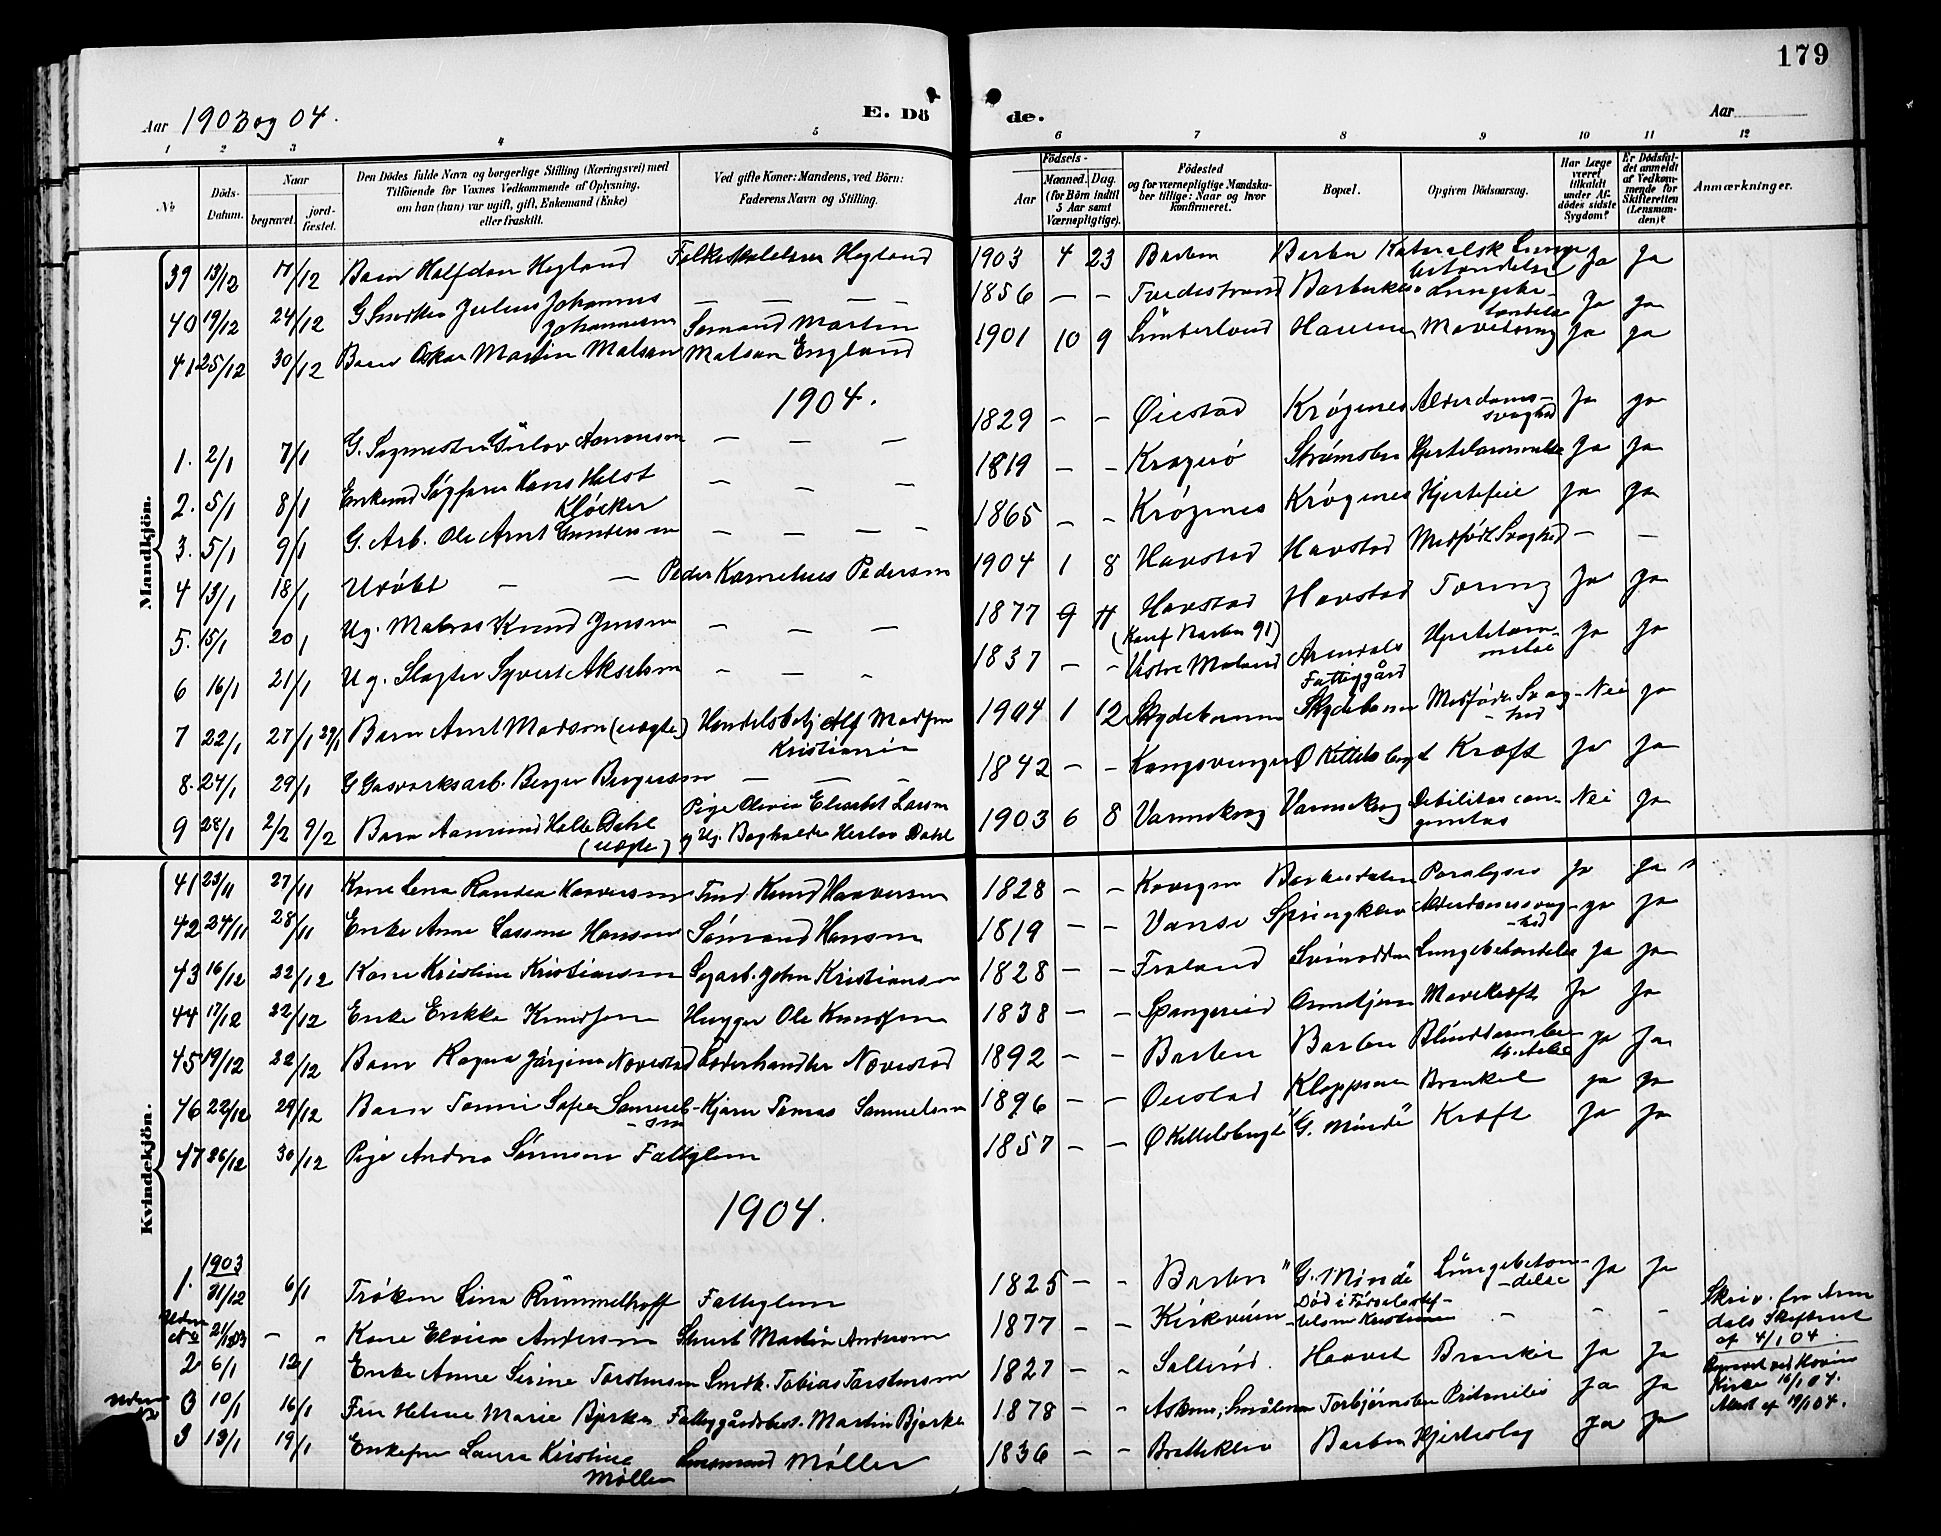 179
Aar 1903 og 04.
E. Dö de.
Aar
1 2 3 4 5 6 7 8 9 10 11 12
№
Döds-Datum.
Naar
begravet.
jord-fæstet.
Den Dödes fulde Navn og borgerlige Stilling (Næringsvei) med
Tilföiende for Voxnes Vedkommende af Oplysning,
om hun (han) var ugift, gift, Enkemand (Enke)
eller fraskilt.
Ved gifte Koner: Mandens, ved Börn:
Faderens Navn og Stilling.
Födsels-
Aar
Maaned. Dag.
(for Börn indtil
5 Aar samt
Værnepligtige).
Födested
og for værnepligtige Mandska-
ber tillige: Naar og hvor
konfirmeret.
Bopæl.
Opgiven Dödsaarsag.
Har Læge
været
tilkaldt
under Af-
dödes sidste
Sygdom?
Er Dödsfal-
det anmeldt
af Vedkom-
mende for
Skifteretten
(Lensman-
den)?
Anmærkninger.
Mandkjön.
39 13/12 17/12 Barn Halfdan Hegland Hegland 1903 4 23 Barbu Barbu Kataralsk Lunge betændelse Ja Ja
40 19/12 24/12 G Snedker Julius Johannes Johannesen — — — — 1856 — — Tvedestrand Lungebetændelse Ja Ja
41 25/12 30/12 Barn Oskar Martin Matson Sømand Martin Matson England 1901 10 9 Sunderland Ja Ja
1904.
1. 2/1 7/1 G. Aanonsen — — — 1829 — — Øiestad Krøgenes Alderdomssvaghed Ja Ja
2. 5/1 8/1 Enkemd Hans Holst Kløcker — — — 1819 — — Kragerø Strømsbu Hjertelammelse Ja Ja
3. 5/1 9/1 G. Arb. Ole Arnt Gundersen — — — — 1865 — — Krøgenes Krøgenes Hjertefeil Ja Ja
4 13/1 18/1 Udøbt — — Peder Kornelius Pedersen 1904 1 8 Havstad Havstad Medfødt Svaghed — —
5. 15/1 20/1 Ug. Matros Knud Jensen — — — 1877 9 Havstad (Konf Barbu 91) Havstad Tæring Ja Ja
6 16/1 21/1 Ug. Slagter Syvert Akselsen — — — 1837 — — Østre Moland Arendals Fattiggård Hjertelammelse Ja Ja
7 22/1 27/1 29/1 Barn Arnt Madson (uægte) Handelsbetj Alf Madsen Kristiania 1904 1 12 Skydebanen Skydebanen Medfødt Svaghed Nei Ja
8. 24/1 29/1 G Gasværksarb. Berger Bergersen — — — 1842 — — Kongsvinger Ø Kittelsbugt Kræft Ja Ja
9 28/1 2/2 9/2 Barn Aamund Helle Dahl (uægte) Pige Olivia Elisabet Larsen og Ug. Bogholder Herlov Dahl 1903 6 8 Debilitas congenitas Nei Ja
Kvindekjön.
41 23/11 27/11 Kone Lena Haaversen Knud Haaversen 1828 — — Barbudalen Paralyse Ja Ja
42 24/11 28/11 Enke Anne Hansen Sømand Hansen 1819 — — Vanse Springklev Alderdomssvaghed Ja Ja
43 16/12 22/12 Kone Kristine Kristiansen Sagarb. John Kristiansen 1828 — — Froland Svinodden Lungebetændelse Ja Ja
44 17/12 22/12 Enke Erikke Knudsen Hugger Ole Knudsen 1838 — — Spangereid Mavekræft Ja Ja
45 19/12 22/12 Barn Ragna Jørgine Novestad Læderhandler Novestad 1892 — — Barbu Barbu Blindtarmsbetændelse Ja Ja
46 22/12 29/12 Barn Tomine Sofie Samuelsen Tomas Samuelsen 1896 — — Øiestad Ja Ja
47 26/12 30/12 Pige Andrea Sørensen Fattiglem 1857 — — Ø Kittelsbugt "G. Minde" Kræft Ja Ja
1904.
1. 1903 31/12 6/1 Frøken Lina Rummelhoff Fattiglem 1825 — — Barbu "G. Minde" Lungebetændelse Ja Ja
Uden № 21/1903 — — Kone Elvira Andersen Martin Andersen 1877 — — Død i — — — Skriv. fra Arendals Skifteret af 4/1 04
2 6/1 12/1 Enke Anne Serine Torstensen Smedk. Tobias Torstensen 1827 — — Salterød Haavet Ja Ja
Uden № 10/1 16/1 Fru Helene Marie Bjerke Fattiggårdsbest. Martin Bjerke 1878 — — Torbjørnsbu Ja Ja Begravet ved Kirke 16/1 04. 19/1 04.
3 13/1 19/1 Enkefru Laura Kirstine Møller Møller 1836 — — Brattekleiv Barbu Hjerteslag Ja Ja